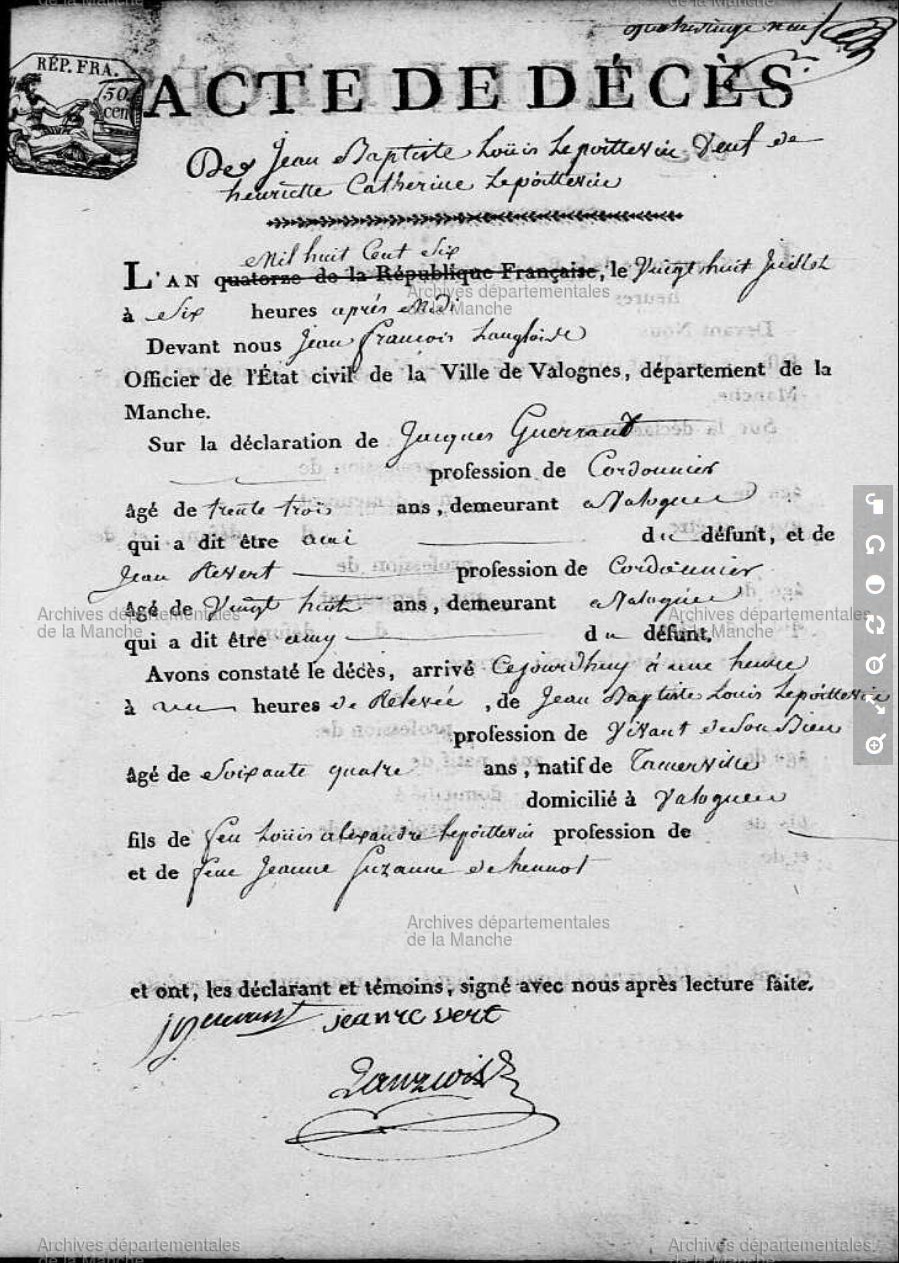 quatrevingt neuf
RÉP. FRA.
50
cen
ACTE DE DÉCÈS
De Jean Baptiste Loüis Lepoittevin Veuf de
henriette Catherine Lepoittevin
Mil huit Cent Six
L'AN quatorze de la République Française, le Vingt huit Juillet
à Six heures après Midi
Devant nous Jean François Langlois
Officier de l'État civil de la Ville de Valognes, département de la
Manche.
Sur la déclaration de Jacques
profession de Cordonnier
âgé de trente trois ans, demeurant a Valognes
qui a dit être ami du défunt, et de
Jean Revert profession de Cordonnier
âgé de Vingt huit ans, demeurant a Valognes
qui a dit être amy du défunt.
Avons constaté le décès, arrivé Cejourdhuy à une heure
à une heures de Relevée, de Jean Baptiste Louis Lepoittevin
profession de Vivant de Son Bien
âgé de Soixante quatre ans, natif de Tamerville
domicilié à Valognes
fils de feu Loüis alexandre lepoittevin profession de
et de feue Jeanne Suzanne de hennot
et ont, les déclarant et témoins, signé avec nous après lecture faite.
jean revert
Archives départementales
de la Manche
Archives départementales
de la Manche
Archives départementales
de la Manche
Archives départementales
de la Manche
Archives départementales
de la Manche
Archives départementales
de la Manche